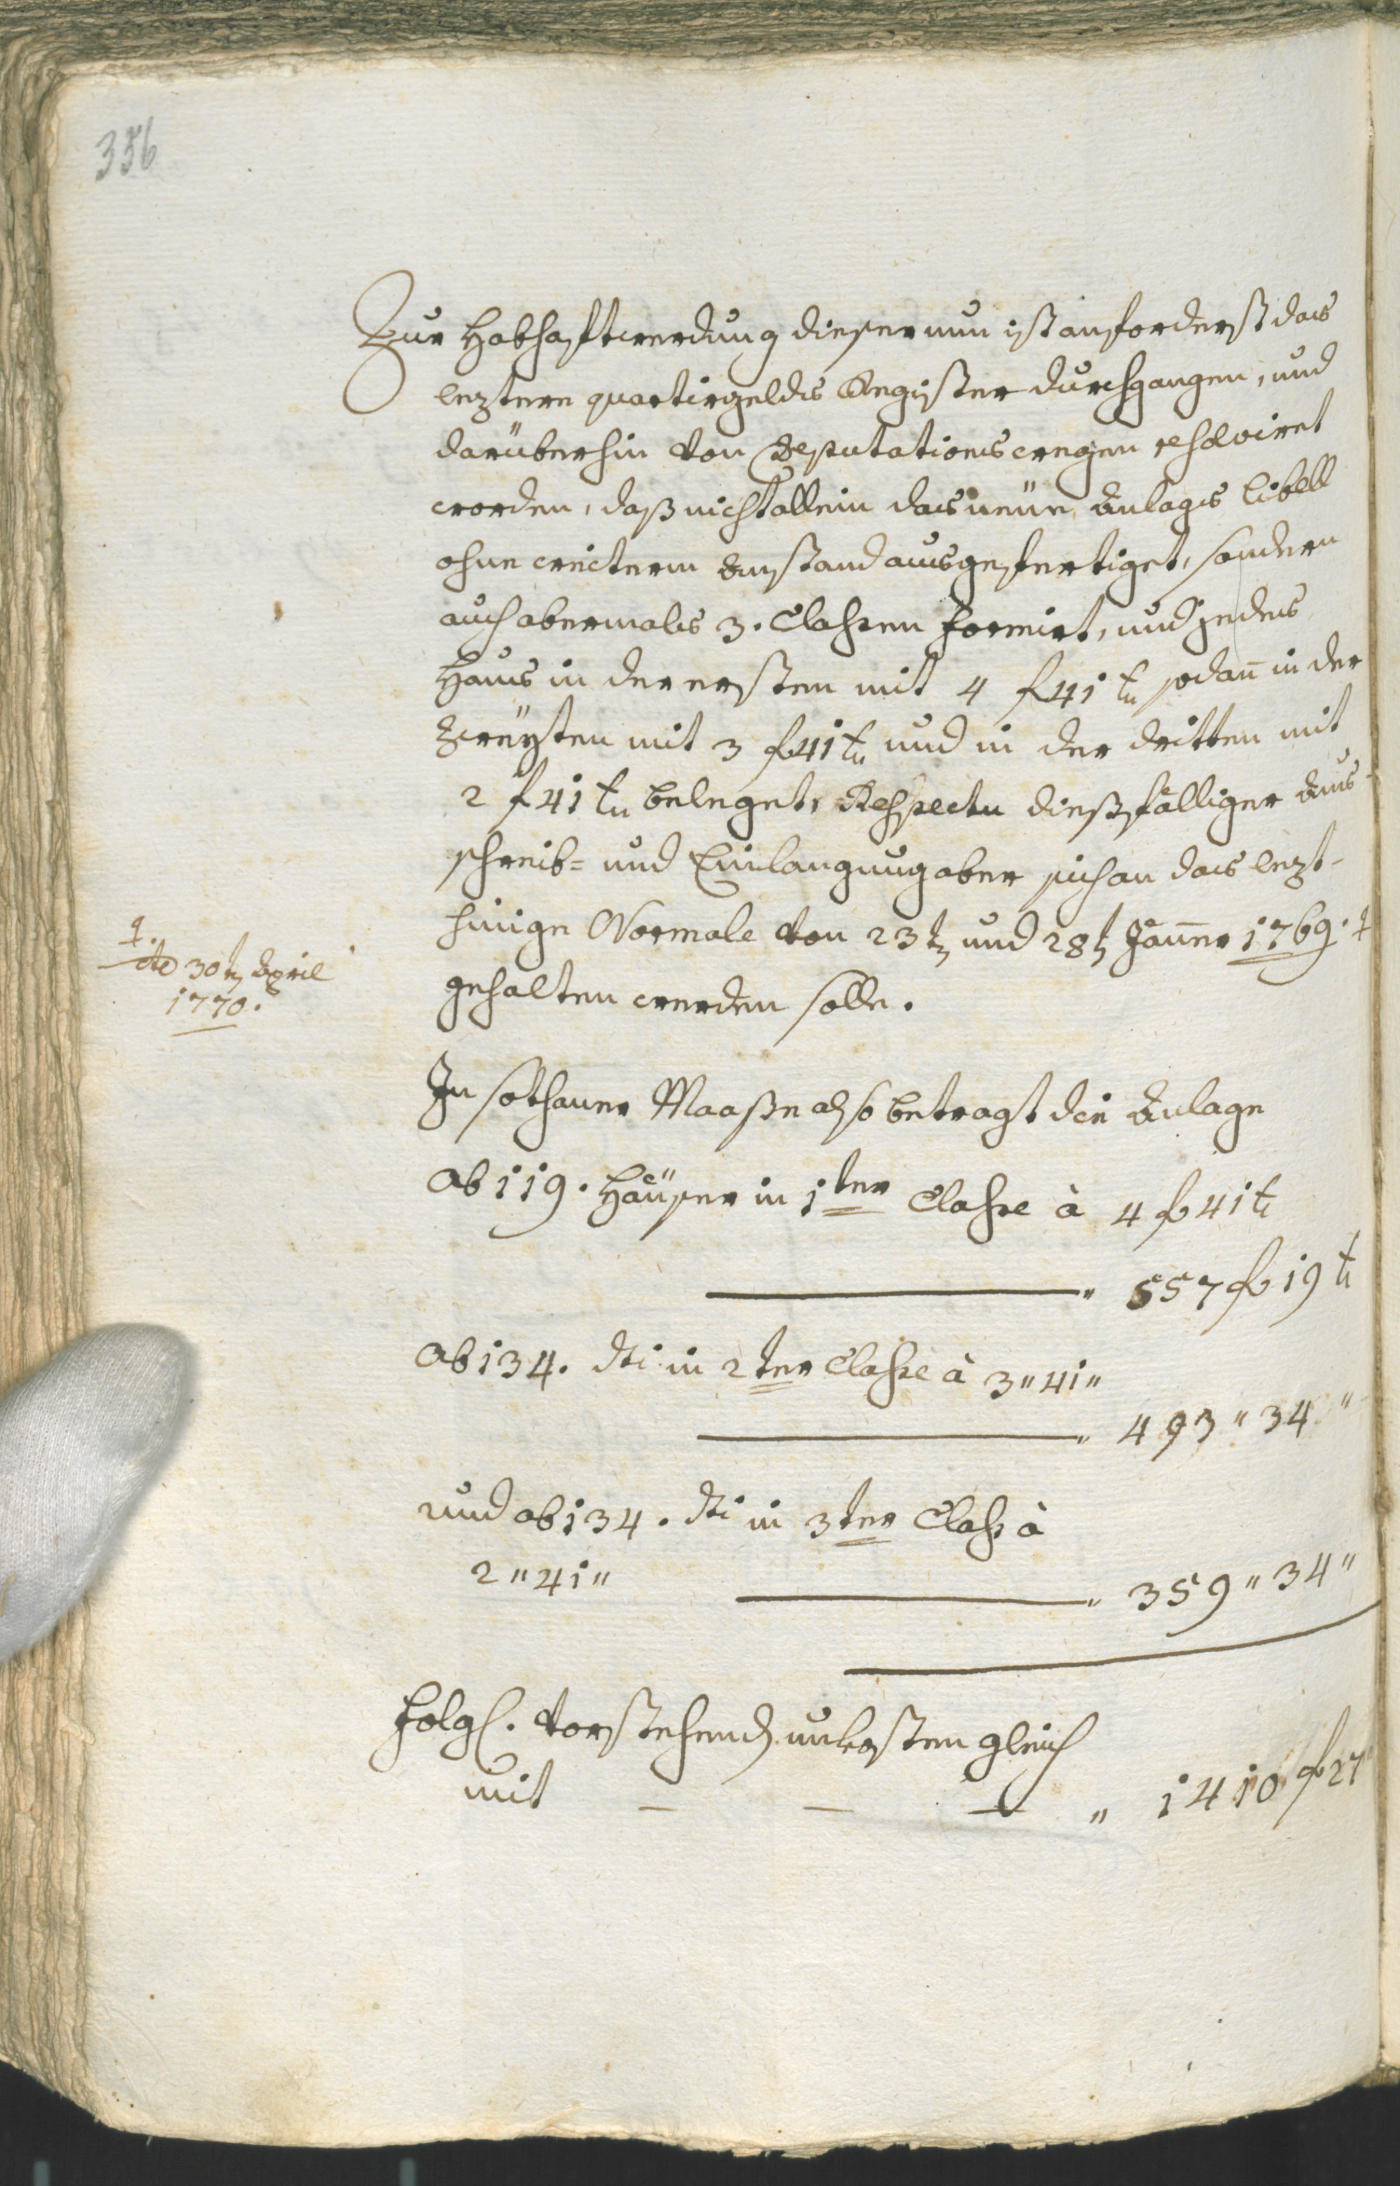 356
Zur Habhaftwerdung dieser nun ist anforderst das
leztere quartirgelds Register durchgangen, und
darüberhin von Deputations wegen resolviret
worden, daß nicht allein das neüe Anlags Libell
ohne weitern Anstand ausgefertiget, sondern
auch abermals 3. Classen formirt, und jedes
Haus in der ersten mit 4 f 41 kr sodan̄ in der
zweyten mit 3 f 41 kr und in der dritten mit
2 f 41 kr beleget, Respectu dießfälliger Aus-
schreib- und Einlangung aber sich an das lezt-
hinige Normale von 23t und 28t Jäner 1769.
gehalten werden solle.
dto 30t April
1770.
In sothaner Maaße also betragt die Anlage
Ab 119. Häuser in 1ter Classe à 4 f 41 kr
" 557 f 19 kr
Ab 134. dti in 2ter Classe à 3 " 41 "
" 493 " 34 "
und ab 134. dti in 3ter Class à
2 " 41 "
" 359 " 34 "
Folgl. vorstehend unkosten gleich
mit — — — " 1410 f 27 "